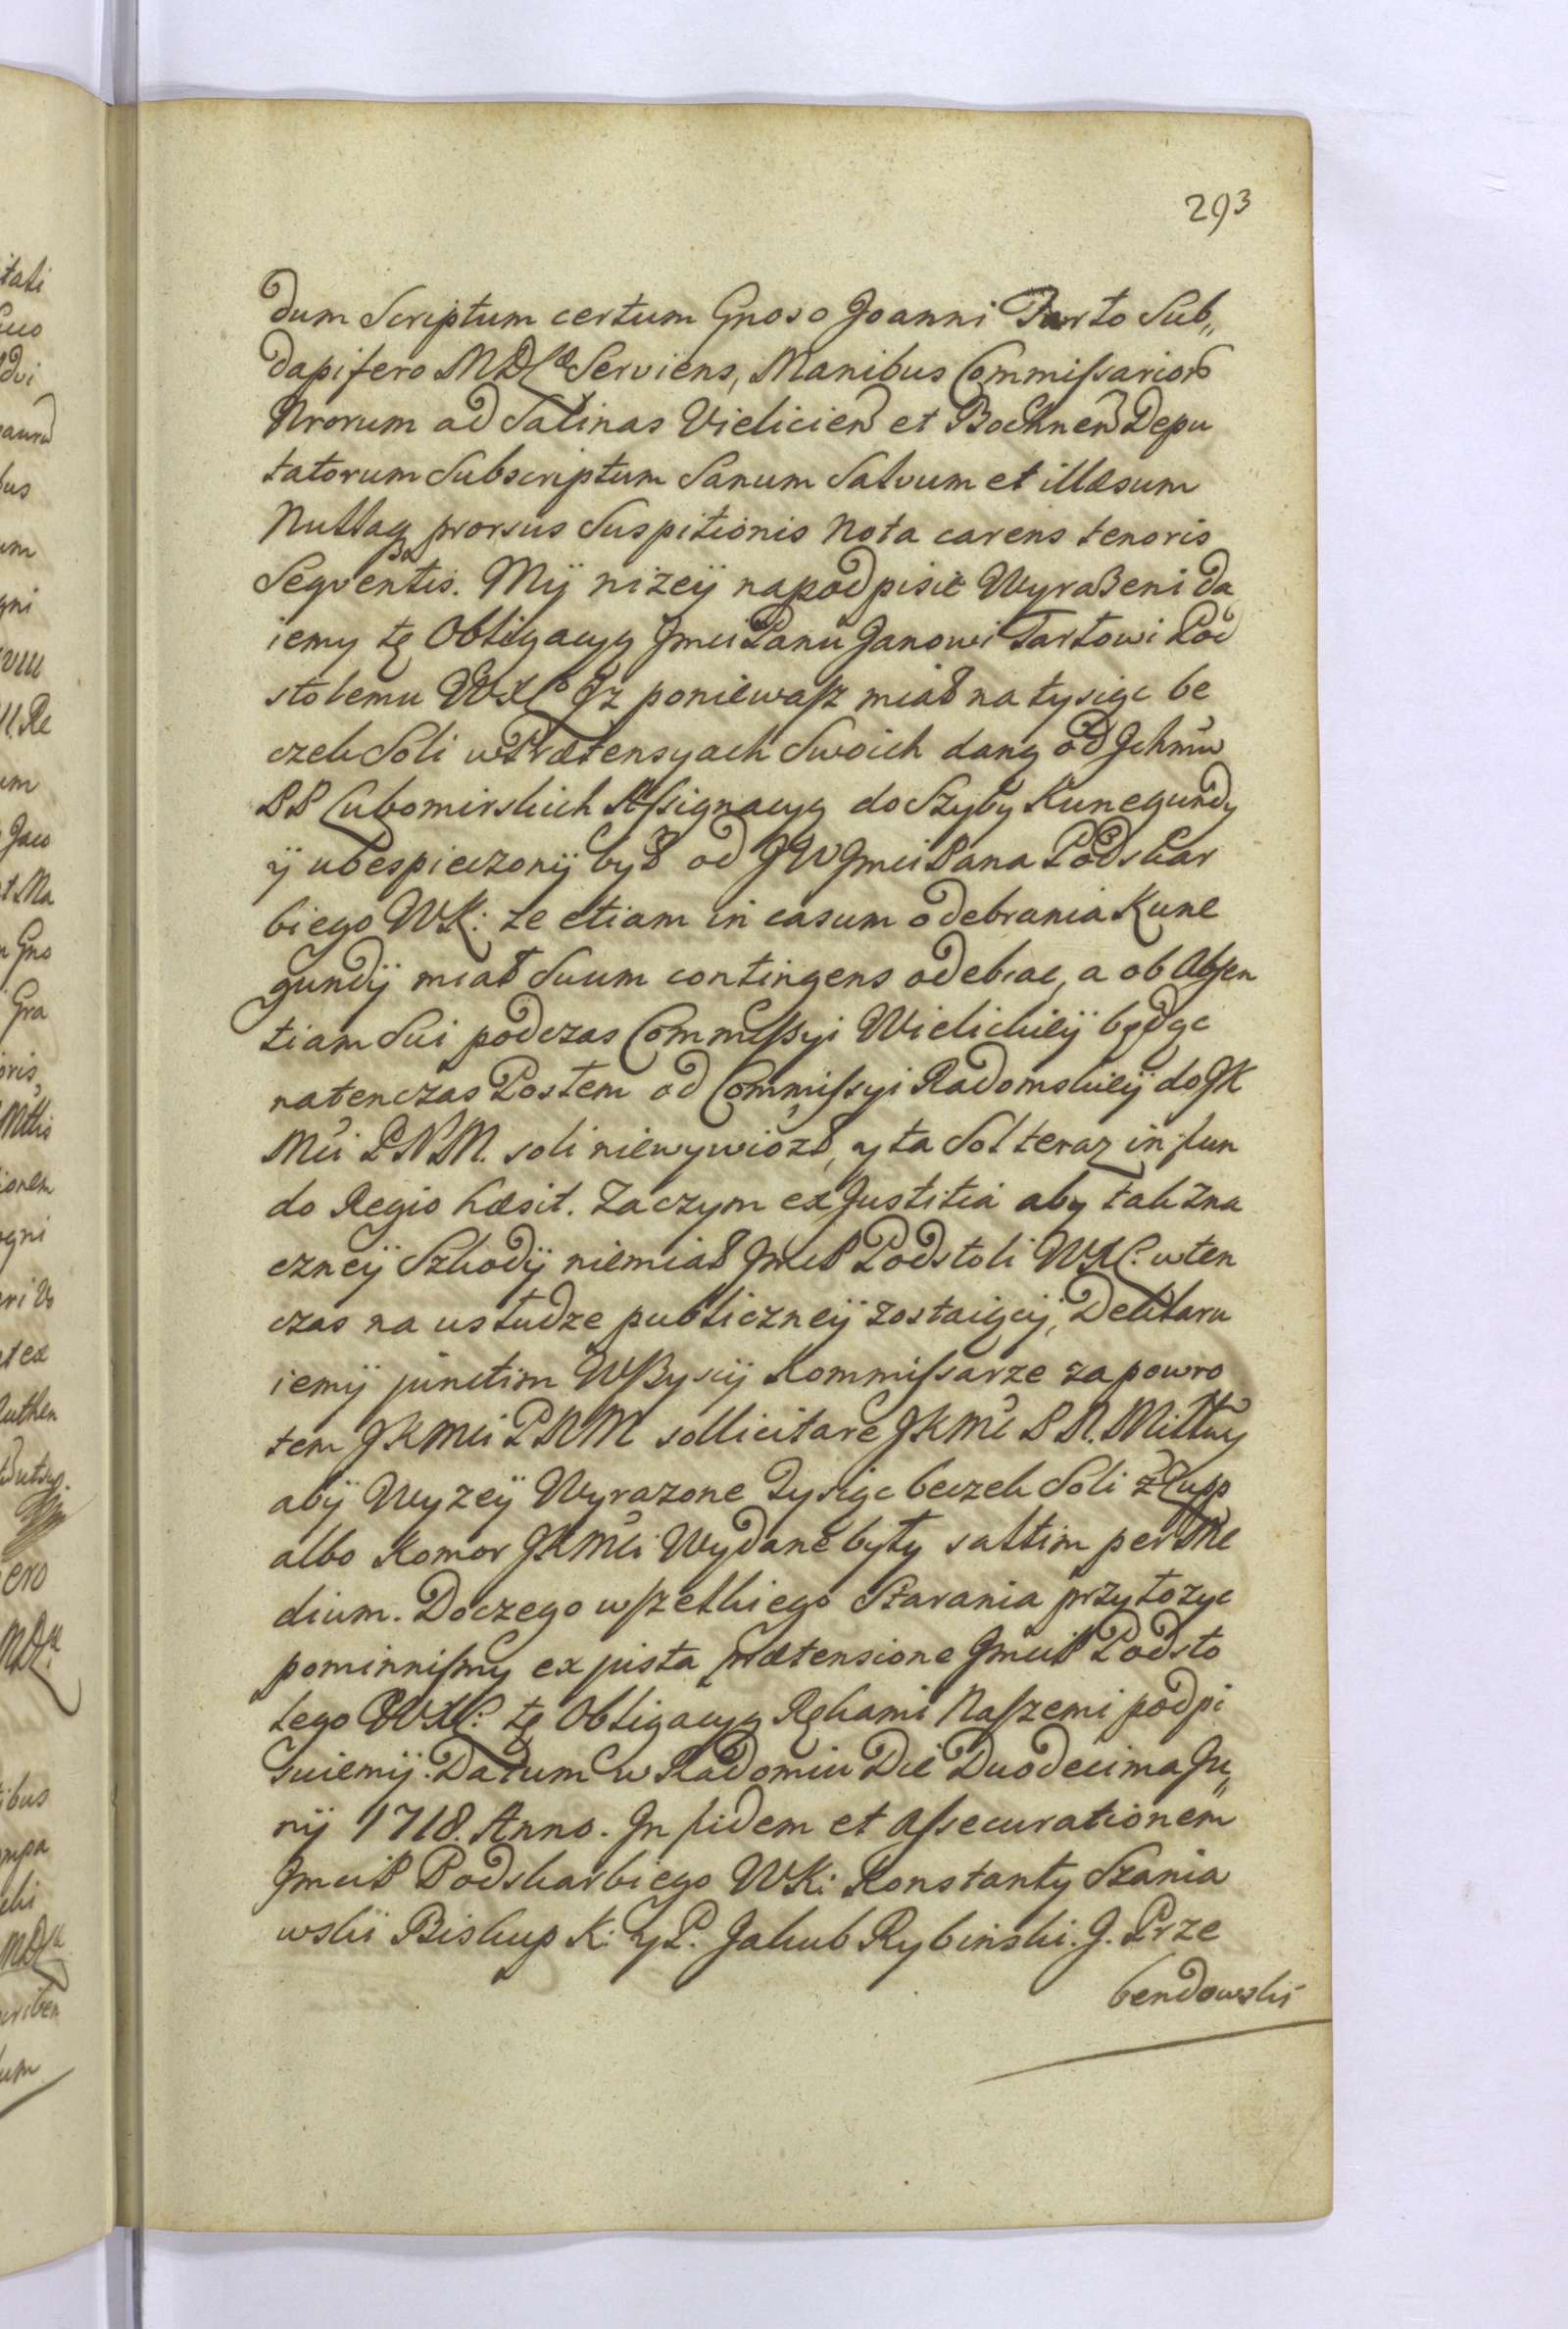 293
dum Scriptum certum Gnoso Joanni Tarło Sub„
dapifero MDL Serviens, Manibus Commissarior
Nrorum ad Salinas Vielicien et Bochnen Depu
tatorum Subscriptum Sanum Salvum et illæsum
Nullaq prorsus Suspitionis Nota carens tenoris
Seqventis. Mÿ niżeÿ na podpisie Wyrażeni da
iemy tę Obligacyą Jmci Panu Janowi Tarłowi Pod
stolemu WXL Jz poniewasz miał na tysiąc be
czek Soli w Prætensyach Swoich daną od Jchmw
PP Lubomirskich Assignacyą do Szyby Kunegundy
ÿ ubespieczonÿ był od JW Jmci Pana Podskar
biego WK: że etiam in casum odebrania Kune
gundÿ miał Suum contingens odebrac, a ob Absen
tiam Sui podczas Commissyi Wielickieÿ będąc
natenczas Posłem od Commissyi Radomskieÿ do JK
Mci PNM. soli niewywiózł, y ta Sol teraz in fun
do Regio hæsit. Zaczym ex Justitia aby tak zna
czneÿ Szkodÿ niemiał JmcP Podstoli WXL: wten
czas na usłudze publiczneÿ zostaiącÿ, Deklaru
iemÿ junctim Wszyscÿ Kommissarze za powro
tem JKMci PNM sollicitare JKMci P N. Miłłwy
abÿ Wyżeÿ Wyrazone Tysiąc beczek Soli z Zupp
albo Komor JKMci Wydane były saltim per Me
dium. Do czego wszelkiego Starania przyłozyc
powinnismy ex justa prætensione JmciP Podsto
lego WXL: tę Obligacyą Rękami Naszemi podpi
suiemÿ. Datum w Radomiu Die Duodecima Ju„
nÿ 1718. Anno. Jn fidem et Assecurationem
JmciP Podskarbiego WK: Konstanty Szania
wski Biskup K: y P. Jakub Rybinski. J. Prze
bendowski